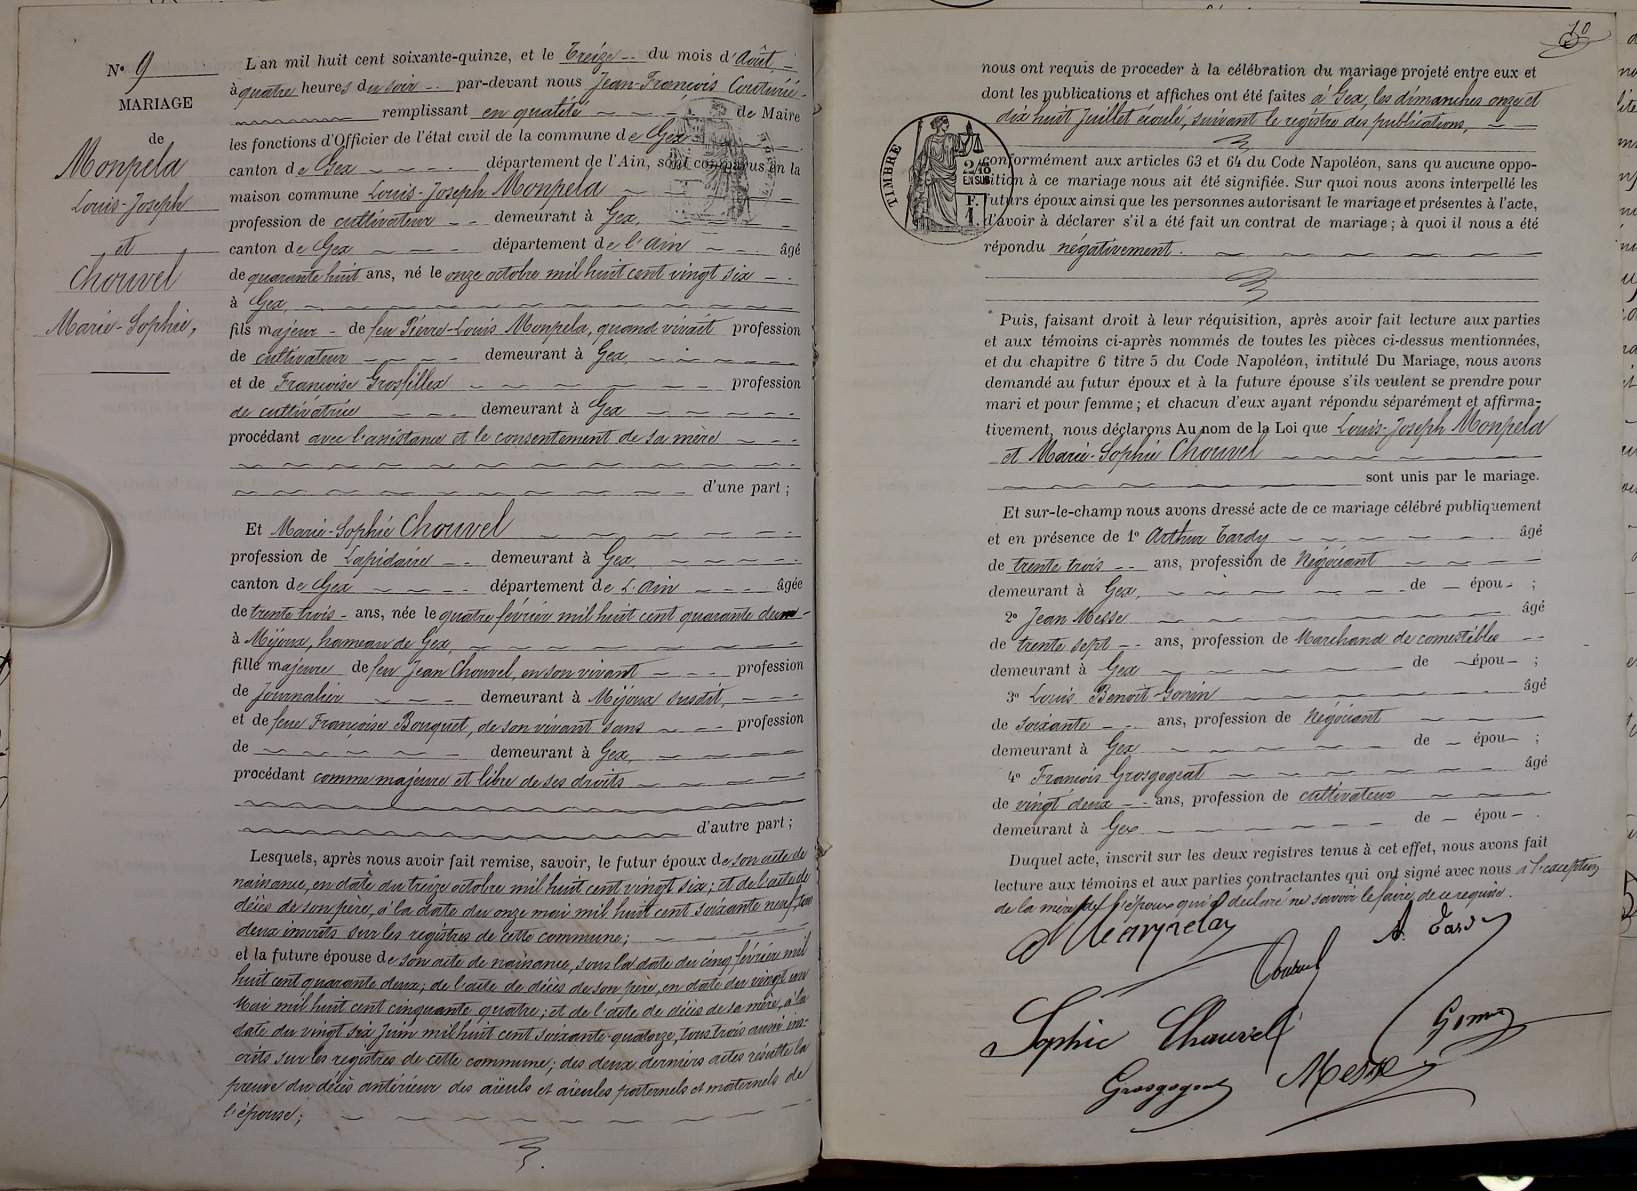 N° 9
MARIAGE
de
Monpela
Louis-Joseph
et
Chouvel
Marie-Sophie,
L'an mil huit cent soixante-quinze, et le Treize du mois d'Août
à quatre heures du soir par-devant nous Jean-François
remplissant en qualité de Maire
les fonctions d'Officier de l'état civil de la commune de Gex
canton de Gex département de l'Ain, sont comparus en la
maison commune Louis-Joseph Monpela
profession de cultivateur demeurant à Gex,
canton de Gex département de l'Ain âgé
de quarante huit ans, né le onze octobre mil huit cent vingt six
à Gex,
fils majeur de feu Pierre-Louis Monpela, quand vivait profession
de cultivateur demeurant à Gex,
et de Françoise Grosfillex profession
de cultivatrice demeurant à Gex
procédant avec l'assistance et le consentement de sa mère
d'une part ;
Et Marie-Sophie Chouvel
profession de Lapidaire demeurant à Gex,
canton de Gex département de L'Ain âgée
de trente trois ans, née le quatre février mil huit cent quarante deux
à Mijoux, hameau de Gex,
fille majeure de feu Jean Chouvel, en son vivant profession
de Journalier demeurant à Mijoux susdit,
et de feue Françoise Bouquet, de son vivant sans profession
de demeurant à Gex,
procédant comme majeure et libre de ses droits
d'autre part ;
Lesquels, après nous avoir fait remise, savoir, le futur époux de son acte de
naissance, en date du treize octobre mil huit cent vingt six ; et de l'acte de
décès de son père, à la date du onze mai mil huit cent soixante neuf, tous
deux inscrits sur les registres de cette commune ;
et la future épouse de son acte de naissance, sous la date du cinq février mil
huit cent quarante deux ; de l'acte de décès de son père, en date du vingt un
Mai mil huit cent cinquante quatre ; et de l'acte de décès de sa mère, à la
date du vingt six Juin mil huit cent soixante-quatorze, tous trois aussi ins-
crits sur les registres de cette commune ; des deux derniers actes résulte la
preuve du décès antérieur des aïeuls et aïeules paternels et maternels de
l'épouse ;
10
nous ont requis de proceder à la célébration du mariage projeté entre eux et
dont les publications et affiches ont été faites à Gex, les dimanches onze et
dix huit Juillet écoulé, suivant le registre des publications,
TIMBRE
2/10
EN SUS
F.
1.
conformément aux articles 63 et 64 du Code Napoléon, sans qu'aucune oppo-
sition à ce mariage nous ait été signifiée. Sur quoi nous avons interpellé les
futurs époux ainsi que les personnes autorisant le mariage et présentes à l'acte,
d'avoir à déclarer s'il a été fait un contrat de mariage ; à quoi il nous a été
répondu négativement.
Puis, faisant droit à leur réquisition, après avoir fait lecture aux parties
et aux témoins ci-après nommés de toutes les pièces ci-dessus mentionnées,
et du chapitre 6 titre 5 du Code Napoléon, intitulé Du Mariage, nous avons
demandé au futur époux et à la future épouse s'ils veulent se prendre pour
mari et pour femme ; et chacun d'eux ayant répondu séparément et affirma-
tivement, nous déclarons Au nom de la Loi que Louis-Joseph Monpela
et Marie-Sophie Chouvel
sont unis par le mariage.
Et sur-le-champ nous avons dressé acte de ce mariage célébré publiquement
et en présence de 1° Arthur Tardy âgé
de trente trois ans, profession de Négociant
demeurant à Gex, de épou ;
2° Jean Messe âgé
de trente sept ans, profession de Marchand de comestibles
demeurant à Gex de épou ;
3° Louis Benoît Gonin âgé
de soixante ans, profession de Négociant
demeurant à Gex de épou ;
4° François Grosgogeat âgé
de vingt deux ans, profession de cultivateur
demeurant à Gex de épou .
Duquel acte, inscrit sur les deux registres tenus à cet effet, nous avons fait
lecture aux témoins et aux parties contractantes qui ont signé avec nous à l'exception
de la mère de l'époux qui a déclaré ne savoir le faire, de ce requise.
A. Tardy
Sophie Chouvel
Gonin
Grosgogeat Messe